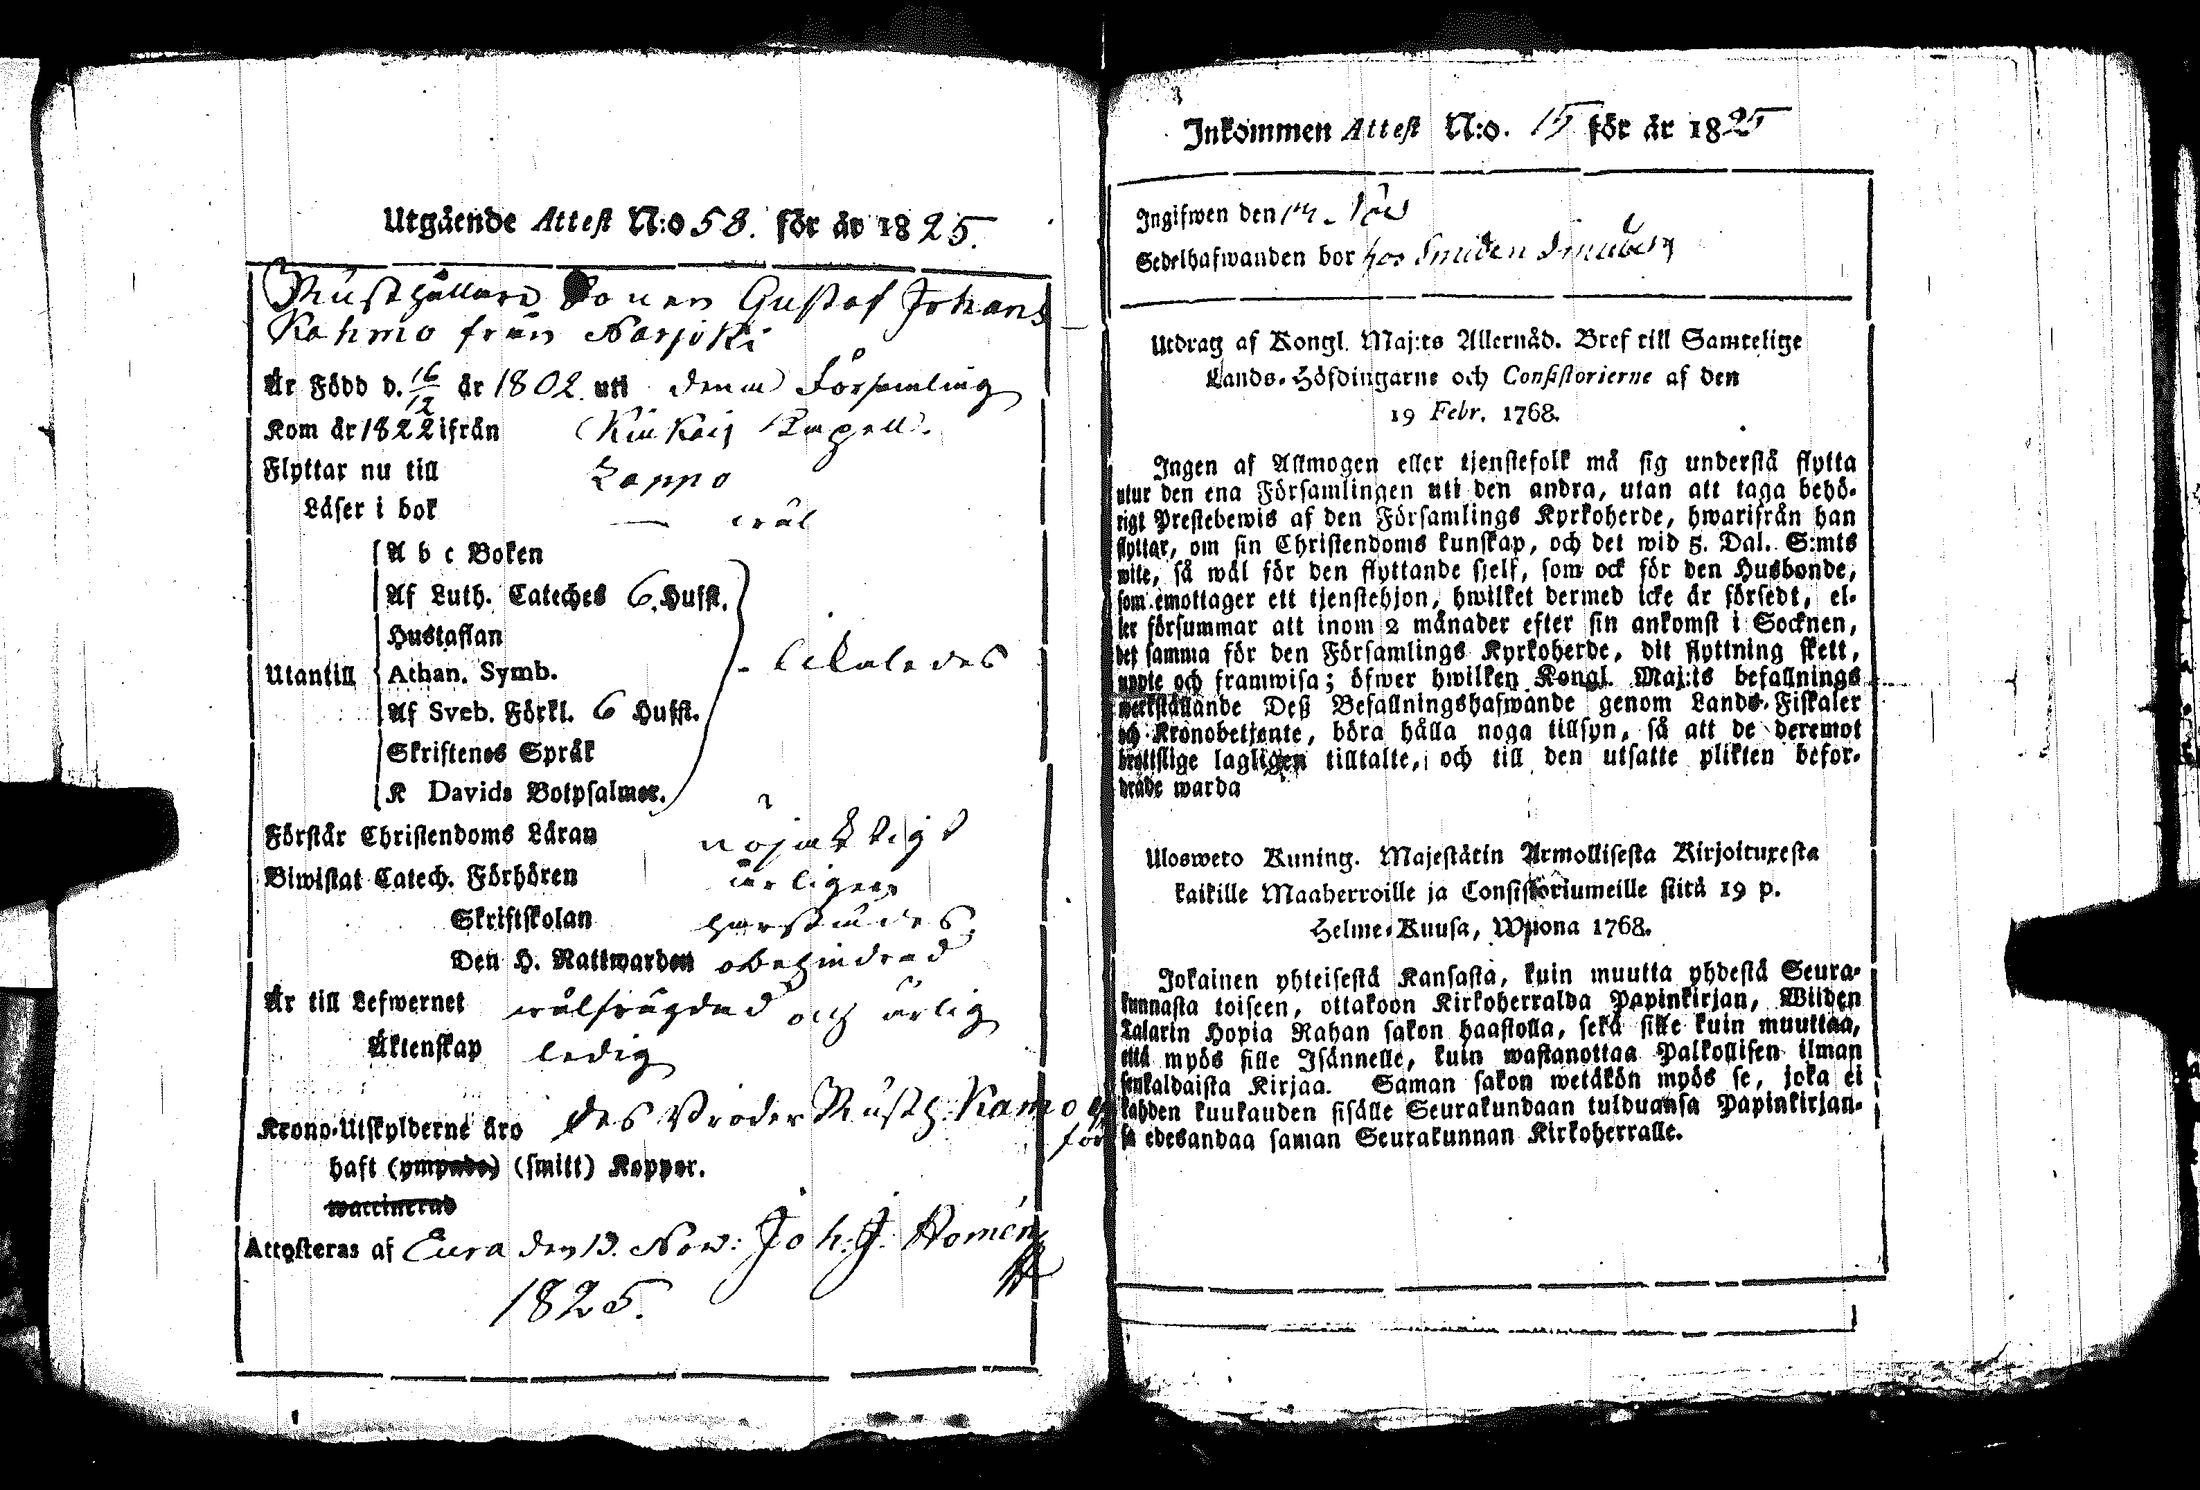 Utgående Attest N:o 58. för år 1825.
Rusthållare Sonen Gustaf Johans
Kahmo från Narjoki
Är Född d. 16/12 år 1802. uti denna Församling
Kom år 1822 ifrån Kiukais Kapell.
Flyttar nu till Lappo
Läser i bok — wäl
Utantill
A b c Boken
Af Luth. Cateches 6 Hufst.
Hustaflan
Athan. Symb.
Af Sveb. Förkl. 6 Hufst.
Skriftenes Språk
K Davids Botpsalmer.
- likaledes
Förstår Christendoms Läran nöjaktigt
Biwistat Catech. Förhören årligen
Skriftskolan
Den H. Nattwarden obehindrad
Är till Lefwernet wälfrägdad och ärlig
Äktenskap ledig
Krono-Utskylderne äro des Broder Rusth. Kamo
för
haft (ympade) (smitt) Koppor.
waccinerad
Attesteras af Eura den 13. Now: Joh. J. Homén
1825.
Inkommen Attest N:o. 15 för år 1825
Ingifwen den
Sedelhafwanden bor hos Smeden
Utdrag af Kongl. Maj:ts Allernåd. Bref till Samtelige
Lands-Höfdingarne och Consistorierne af den
19 Febr. 1768.
Ingen af Allmogen eller tjenstefolk må sig understå flytta
utur den ena Församlingen uti den andra, utan att taga behö-
rigt Prestebewis af den Församlings Kyrkoherde, hwarifrån han
flyttar, om sin Christendoms kunskap, och det wid 5. Dal. S:mts
wite, så wäl för den flyttande sjelf, som ock för den Husbonde,
som emottager ett tjenstehjon, hwilket dermed icke är försedt, el-
ler försummar att inom 2 månader efter sin ankomst i Socknen,
det samma för den Församlings Kyrkoherde, dit flyttning skett,
uppte och framwisa; öfwer hwilken Kongl. Maj:ts befallnings
werkställande Deß Befallningshafwande genom Lands-Fiskaler
och Kronobetjente, böra hålla noga tillsyn, så att de deremot
brottslige lagligen tilltalte, och till den utsatte plikten befor-
drade warda
Ulosweto Kuning. Majestätin Armollisesta Kirjoituxesta
kaikille Maaherroille ja Consistoriumeille siitä 19 p.
Helme-Kuusa, Wuona 1768.
Jokainen yhteisestä Kansasta, kuin muutta yhdestä Seura-
kunnasta toiseen, ottakoon Kirkoherralda Papinkirjan, Wiiden
Talarin Hopia Rahan sakon haastolla, sekä sille kuin muuttaa,
että myös sille Isännelle, kuin wastanottaa Palkollisen ilman
senkaldaista Kirjaa. Saman sakon wetäkön myös se, joka ei
kahden kuukauden sisälle Seurakundaan tulduansa Papinkirjan-
sa edesandaa saman Seurakunnan Kirkoherralle.